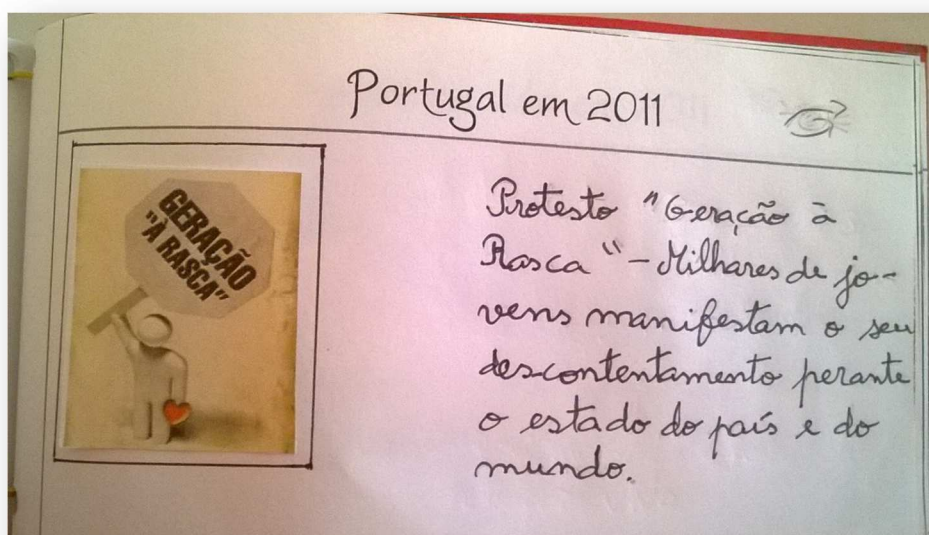 Portugal em 2011
GERAÇÃO
"À RASCA"
Protesto "Geração à
Rasca" - Milhares de jo-
vens manifestam o seu
descontentamento perante
o estado do país e do
mundo.